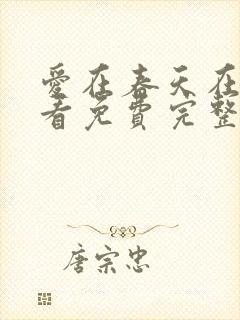 愛在春天在
看免費完整
唐宗忠